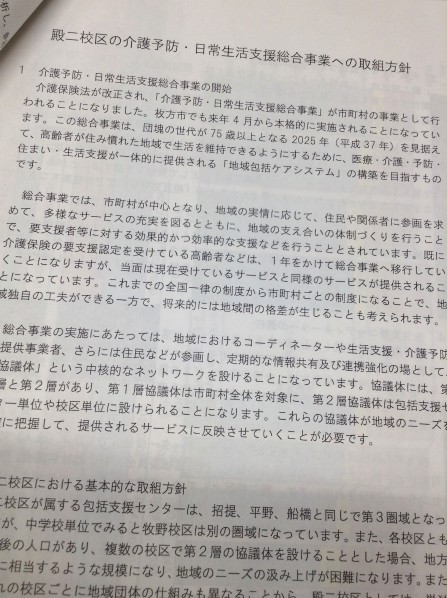 殿二校区の介護予防・日常生活支援総合事業への取組方針
1 介護予防・日常生活支援総合事業の開始
介護保険法が改正され、「介護予防・日常生活支援総合事業」が市町村の事業として行
われることになりました。枚方市でも来年4月から本格的に実施されることになってい
ます。この総合事業は、団塊の世代が75歳以上となる2025年（平成37年）を見据え
て、高齢者が住み慣れた地域で生活を維持できるようにするために、医療・介護・予防・
住まい・生活支援が一体的に提供される「地域包括ケアシステム」の構築を目指すもの
です。
総合事業では、市町村が中心となり、地域の実情に応じて、住民や関係者に参画を求
めて、多様なサービスの充実を図るとともに、地域の支え合いの体制づくりを行うこと
で、要支援者等に対する効果的かつ効率的な支援などを行うこととされています。既に
介護保険の要支援認定を受けている高齢者などは、1年をかけて総合事業へ移行してい
くことになりますが、当面は現在受けているサービスと同様のサービスが提供されるこ
とになっています。これまでの全国一律の制度から市町村ごとの制度になることで、地
域独自の工夫ができる一方で、将来的には地域間の格差が生じることも考えられます。
総合事業の実施にあたっては、地域におけるコーディネーターや生活支援・介護予防
提供事業者、さらには住民などが参画し、定期的な情報共有及び連携強化の場として、
協議体」という中核的なネットワークを設けることになっています。協議体には、第
層と第2層があり、第1層協議体は市町村全体を対象に、第2層協議体は包括支援セ
ター単位や校区単位に設けられることになります。これらの協議体が地域のニーズを
に把握して、提供されるサービスに反映させていくことが必要です。
二校区における基本的な取組方針
二校区が属する包括支援センターは、招提、平野、船橋と同じで第3圏域となっ
が、中学校単位でみると牧野校区は別の圏域になっています。また、各校区とも
後の人口があり、複数の校区で第2層の協議体を設けることとした場合、地方
に相当するような規模になり、地域のニーズの汲み上げが困難になります。また
れの校区ごとに地域団体の仕組みも異なることから、殿二校区としては、